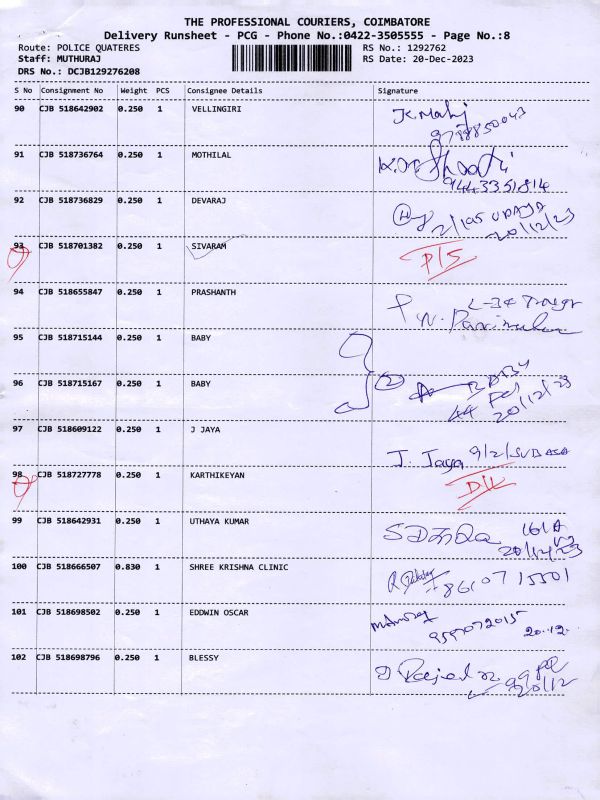 THE PROFESSIONAL COURIERS, COIMBATORE
Delivery Runsheet - PCG - Phone No.:0422-3505555 - Page No.:8
Route: POLICE QUATERES RS No.: 1292762
Staff: MUTHURAJ RS Date: 20-Dec-2023
DRS No.: DCJB129276208
S No Consignment No Weight PCS Consignee Details Signature
90 CJB 518642902 0.250 1 VELLINGIRI
9788850043
91 CJB 518736764 0.250 1 MOTHILAL
9443351814
92 CJB 518736829 0.250 1 DEVARAJ
2/195 UDAYA
20/12/23
93 CJB 518701382 0.250 1 SIVARAM
P/S
94 CJB 518655847 0.250 1 PRASHANTH
95 CJB 518715144 0.250 1 BABY
96 CJB 518715167 0.250 1 BABY
2 BABY
20/12/23
97 CJB 518609122 0.250 1 J JAYA
J. Jaya 9/2/
98 CJB 518727778 0.250 1 KARTHIKEYAN
D/L
99 CJB 518642931 0.250 1 UTHAYA KUMAR
161 A
20/12/23
100 CJB 518666507 0.830 1 SHREE KRISHNA CLINIC
8610715501
101 CJB 518698502 0.250 1 EDDWIN OSCAR
9597072015
20.12.
102 CJB 518698796 0.250 1 BLESSY
20/12